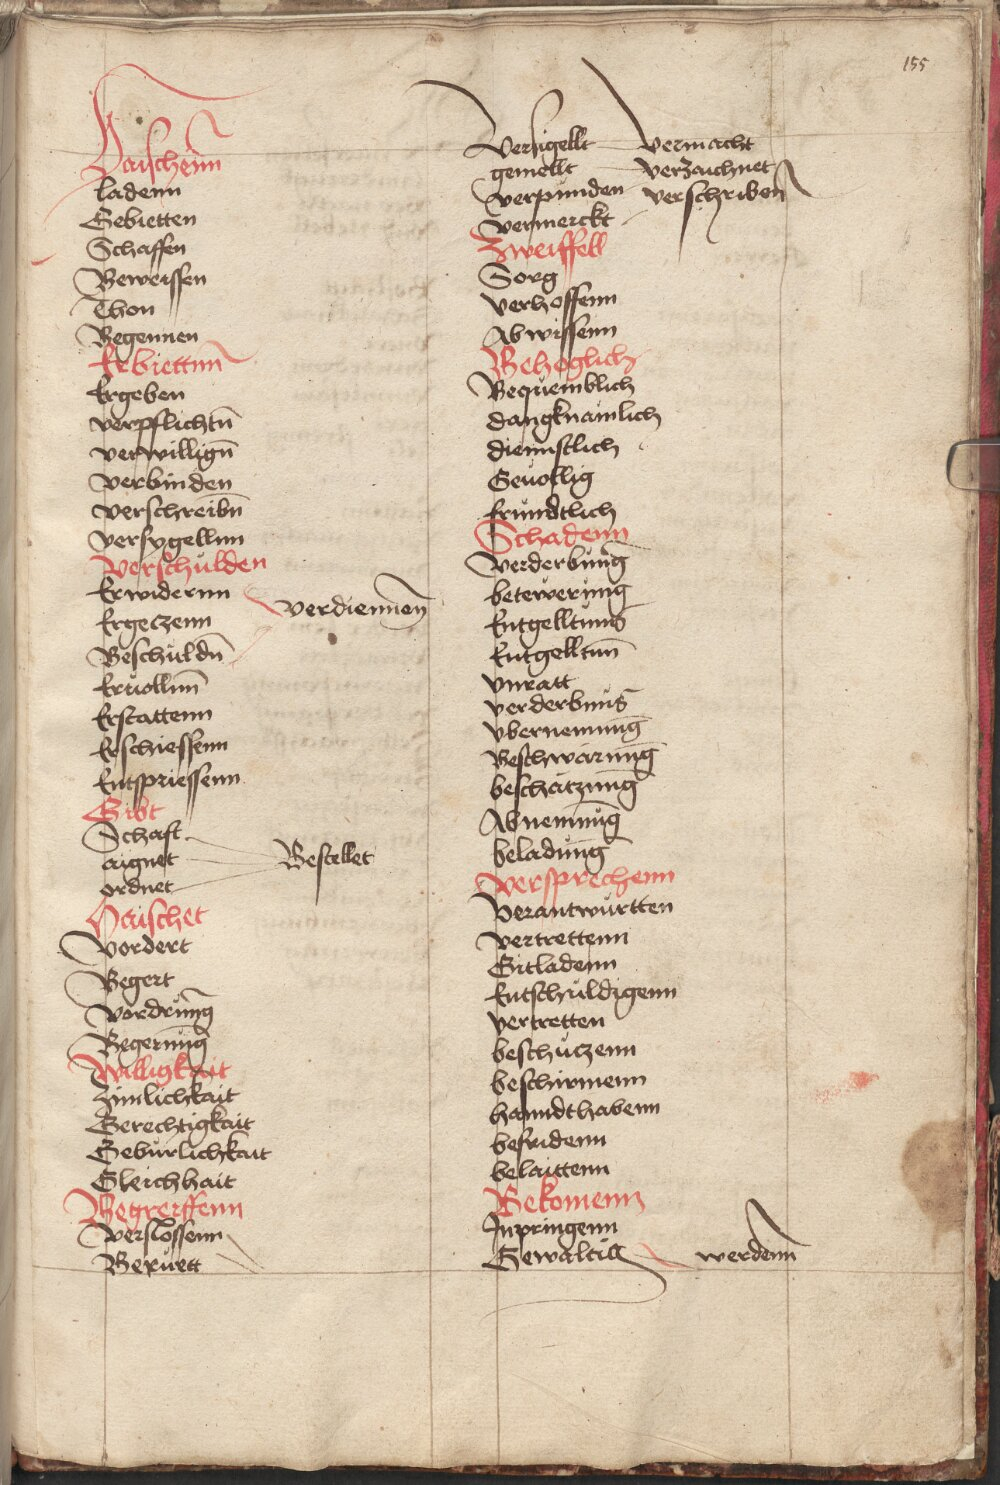 155
Haischenn
ladenn
Gebietten
Schaffen
Beweissen
Thon
Begennen
Erbiettnn
Ergeben
verpflichtn̄
verwillign̄
verbinden
verschreibn̄
versygellnn
verschulden
Erwidernn
verdiennen
Ergeczenn
Beschuldn̄
Eruollnn̄
Erstattenn
Erschiessenn
Entspriessenn
Gibt
Schaft
aignet
Bestellet
ordnet
Haischet
vordert
Begert
vordrung
Begerung
Willigkait
Zimlichkait
Gerechtigkait
Geburlichkait
Gleichhait
Begreiffenn
verslossenn
Beruett
versigellt
vermacht
gemellt
verzaichnet
verpunden
verschriben
vermerckt
Zweiffell
Sorg
verhoffenn
Abwissenn
Beheglich
Bequemblich
dangknamlich
diennstlich
Geuollig
frundtlich
Schadenn
verderbung
betewerung
Entgelltnus
Entgelltnn̄
vnratt
verderbnus
vbernemung
Beschwarung
beschatzung
Abnemung
beladung
versprechenn
verantwurtten
vertrettenn
Eitladenn
Entschuldigenn
vertretten
beschuczenn
beschirmenn
hanndthabenn
befridenn
belaittenn
Bekomenn
Inpringenn
Gewaltill
werdenn